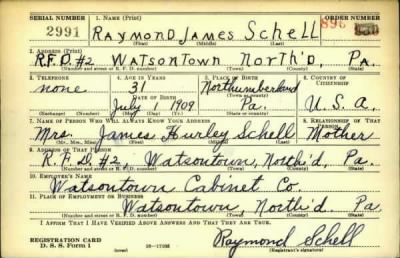 SERIAL NUMBER 1. NAME (Print) ORDER NUMBER
2991 RAYMOND JAMES Schell 896
(First) (Middle) (Last)
2. ADDRESS (Print)
R.F.D. #2 WATSONTOWN North'd, Pa.
(Number and street or R. F. D. number) (Town) (County) (State)
3. TELEPHONE 4. AGE IN YEARS 5. PLACE OF BIRTH 6. COUNTRY OF CITIZENSHIP
none 31 Northumberland
DATE OF BIRTH (Town or county)
July 1 1909 Pa. U.S.A.
(Mo.) (Day) (Yr.) (State or country)
7. NAME OF PERSON WHO WILL ALWAYS KNOW YOUR ADDRESS 8. RELATIONSHIP OF THAT PERSON
Mrs. James Hurley Schell Mother
(Mr., Mrs., Miss) (First) (Middle) (Last)
9. ADDRESS OF THAT PERSON
R.F.D. #2, Watsontown, North'd, Pa.
(Number and street or R. F. D. number) (Town) (County) (State)
10. EMPLOYER'S NAME
Watsontown Cabinet Co.
11. PLACE OF EMPLOYMENT OR BUSINESS
Watsontown, North'd. Pa.
(Number and street or R. F. D. number) (Town) (County) (State)
I AFFIRM THAT I HAVE VERIFIED ABOVE ANSWERS AND THAT THEY ARE TRUE.
REGISTRATION CARD
D. S. S. Form 1
Raymond Schell
(Registrant's signature)